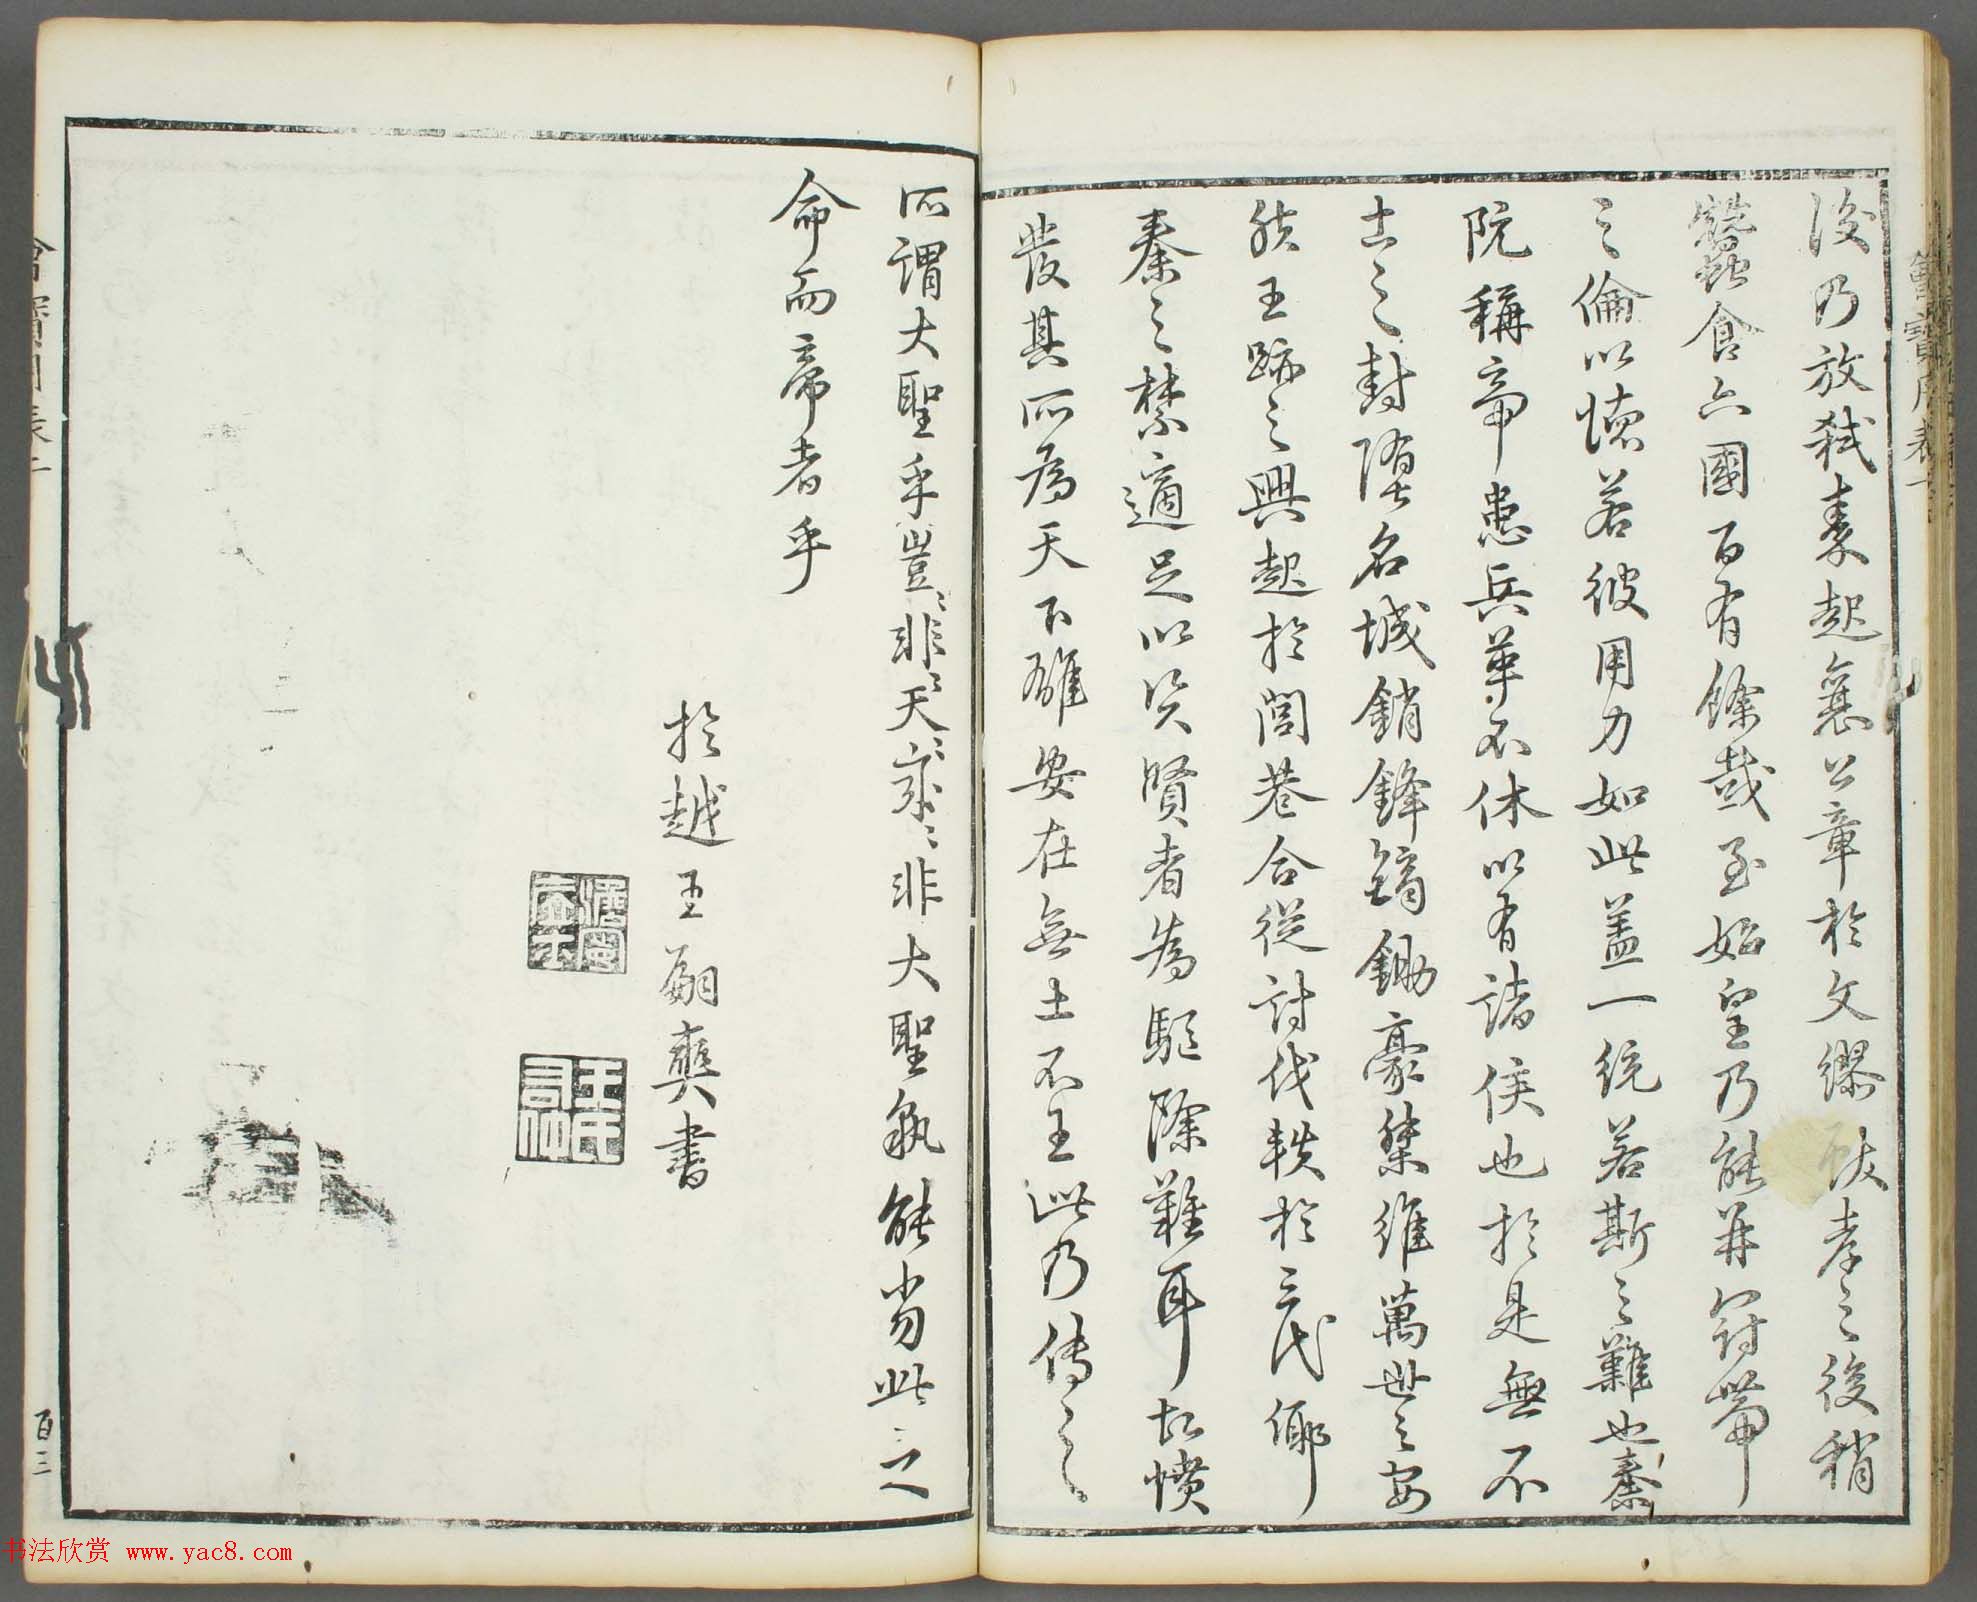 後乃放弒秦起襄公章於文繆獻孝之後稍
蠶食六國百有餘載至始皇乃能并冠帶
之倫以德若彼用力如此蓋一統若斯之難也秦
既稱帝患兵革不休以有諸侯也於是無尺
土之封墮名城銷鋒鏑鋤豪桀維萬世之安
然王跡之興起於閭巷合從討伐軼於三代鄉
秦之禁適足以資賢者為驅除難耳故憤
發其所為天下雄安在無土不王此乃傳之
所謂大聖乎豈〻非〻天〻哉〻非大聖孰能當此受
命而帝者乎
於越王嗣奭書
百三
书法欣赏 www.yac8.com